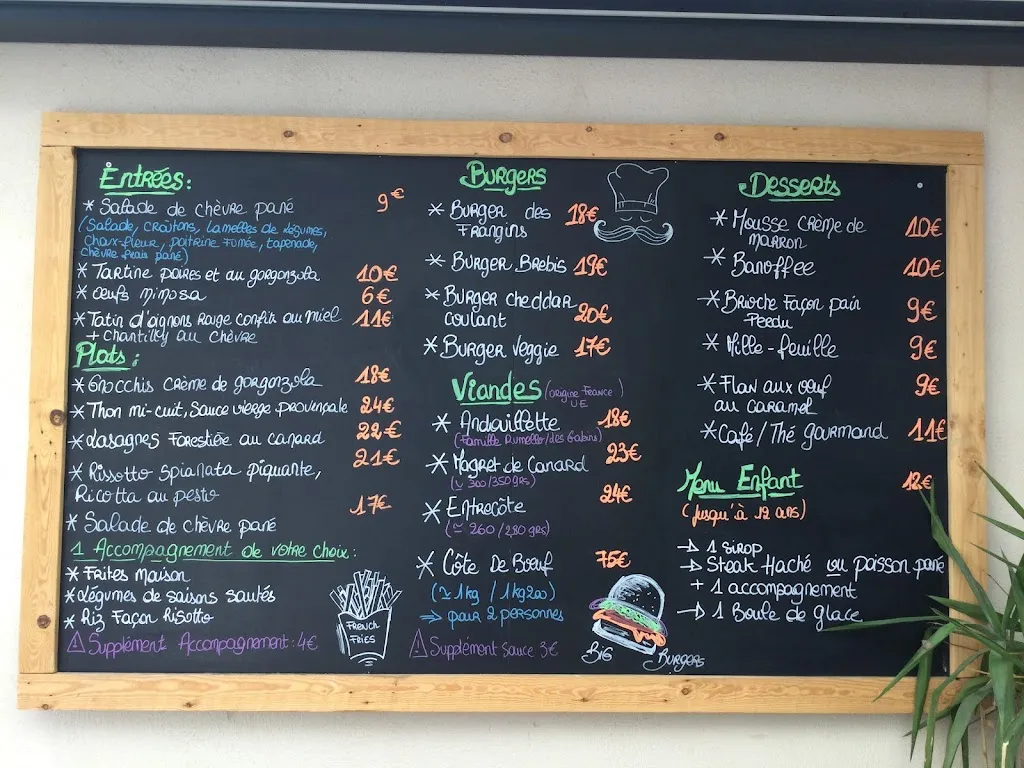 Entrées:
* Salade de chèvre pané 9€
(Salade, croûtons, lamelles de légumes,
Choux-fleur, poitrine fumée, tapenade,
chèvre frais pané)
* Tartine poires et au gorgonzola 10€
* oeufs mimosa 6€
* Tatin d'oignons Rouge confits au miel 11€
+ chantilly au chèvre
Plats:
* Gnocchis crème de gorgonzola 18€
* Thon mi-cuit, Sauce vierge provençale 24€
* Lasagnes Forestière au canard 22€
* Rissotto spianata piquante, 21€
Ricotta au pesto
* Salade de chèvre pané 17€
1 Accompagnement de votre choix:
* Frites maison
* légumes de saisons sautés
* Riz Façon Risotto
⚠ Supplément Accompagnement: 4€
FRENCH
FRIES
Burgers
* Burger des 18€
Frangins
* Burger Brebis 19€
* Burger cheddar
coulant 20€
* Burger veggie 17€
Viandes (origine France)
U.E
* Andouillette 18€
(Famille
* Magret de Canard 23€
(~ 300/350grs)
* Entrecôte 24€
(≃ 260/280 grs)
* Côte De Boeuf 75€
(≃ 1kg / 1kg200)
⇒ pour 2 personnes
⚠ Supplément sauce 3€
BIG BURGERS
Desserts
* Mousse crème de 10€
marron
* Banoffee 10€
* Brioche Façon pain 9€
Perdu
* Mille-feuille 9€
* Flan aux oeuf 9€
au caramel
* Café/Thé gourmand 11€
Menu Enfant 12€
(Jusqu'à 12 ans)
→ 1 sirop
→ Steak Haché ou poisson pané
+ 1 accompagnement
→ 1 Boule de glace